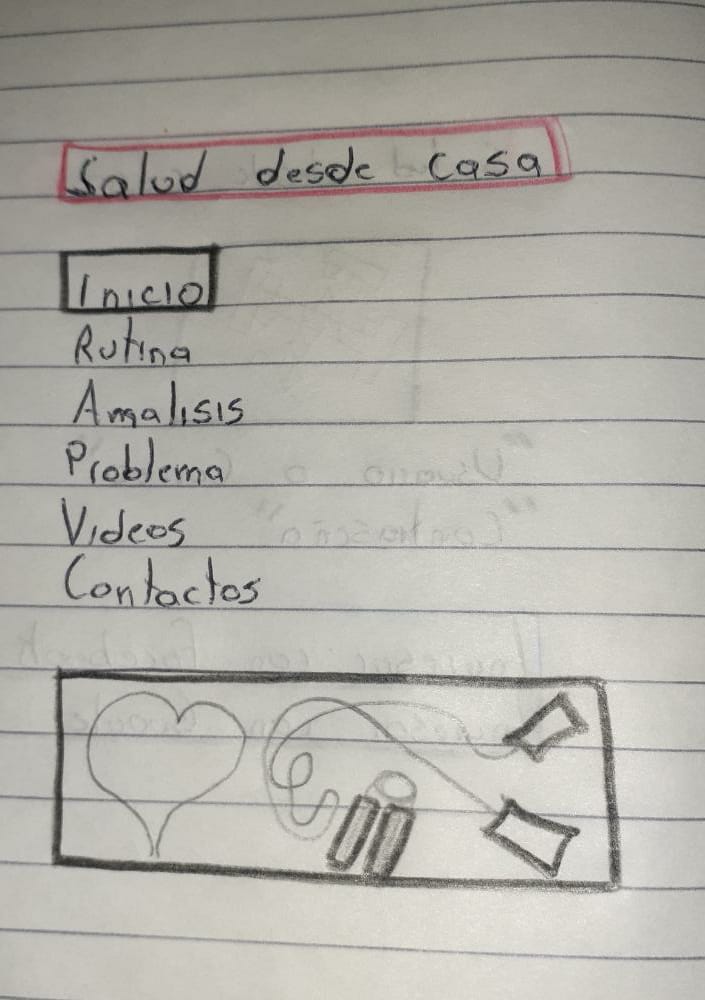 Salud desde casa
Inicio
Rutina
Amalisis
Problema
Videos
Contactos